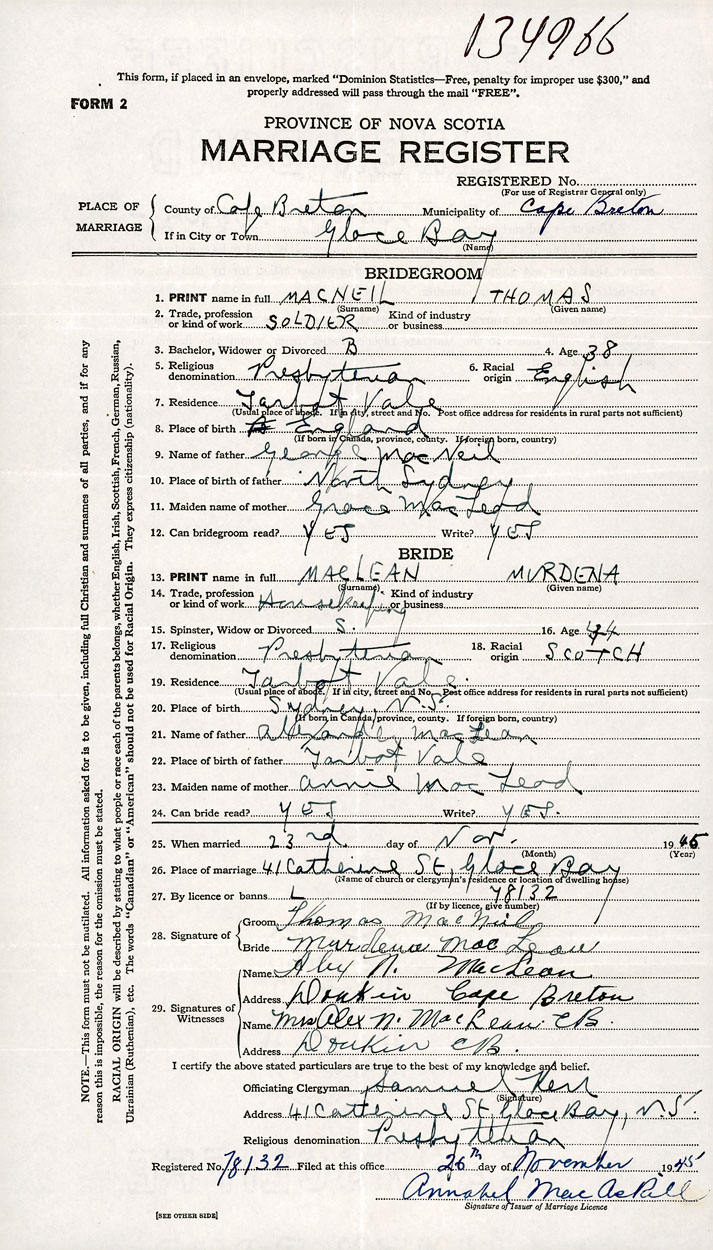 134966
This form, if placed in an envelope, marked "Dominion Statistics—Free, penalty for improper use $300," and
properly addressed will pass through the mail "FREE".
FORM 2
PROVINCE OF NOVA SCOTIA
MARRIAGE REGISTER
REGISTERED No.
(For use of Registrar General only)
PLACE OF MARRIAGE
County of Cape Breton Municipality of Cape Breton
If in City or Town Glace Bay
(Name)
BRIDEGROOM
1. PRINT name in full MACNEIL THOMAS
(Surname) (Given name)
2. Trade, profession or kind of work SOLDIER Kind of industry or business
3. Bachelor, Widower or Divorced B 4. Age 38
5. Religious denomination Presbyterian 6. Racial origin English
7. Residence Tarbot Vale
(Usual place of abode. If in city, street and No. Post office address for residents in rural parts not sufficient)
8. Place of birth England
(If born in Canada, province, county. If foreign born, country)
9. Name of father George MacNeil
10. Place of birth of father North Sydney
11. Maiden name of mother Grace MacLeod
12. Can bridegroom read? YES Write? YES
BRIDE
13. PRINT name in full MACLEAN MURDENA
(Surname) (Given name)
14. Trade, profession or kind of work Housekeeping Kind of industry or business
15. Spinster, Widow or Divorced S. 16. Age 44
17. Religious denomination Presbyterian 18. Racial origin SCOTCH
19. Residence Tarbot Vale.
(Usual place of abode. If in city, street and No. Post office address for residents in rural parts not sufficient)
20. Place of birth Sydney, N.S.
(If born in Canada, province, county. If foreign born, country)
21. Name of father Alexander MacLean
22. Place of birth of father Tarbot Vale
23. Maiden name of mother Annie MacLeod
24. Can bride read? YES Write? YES.
25. When married 23rd. day of Nov. 1945
(Month) (Year)
26. Place of marriage 41 Catherine St, Glace Bay
(Name of church or clergyman's residence or location of dwelling house)
27. By licence or banns L 78132
(If by licence, give number)
28. Signature of
Groom Thomas MacNeil
Bride Murdena MacLean
29. Signatures of Witnesses
Name Alex N. MacLean
Address Donkin Cape Breton
Name Mrs Alex N. MacLean C B.
Address Donkin C B.
I certify the above stated particulars are true to the best of my knowledge and belief.
Officiating Clergyman Samuel Kerr
(Signature)
Address 41 Catherine St, Glace Bay, N.S.
Religious denomination Presbyterian
Registered No. 78132 Filed at this office 26th day of November 1945
Annabel MacAskill
Signature of Issuer of Marriage Licence
[SEE OTHER SIDE]
NOTE.—This form must not be mutilated. All information asked for is to be given, including full Christian and surnames of all parties, and if for any
reason this is impossible, the reason for the omission must be stated.
RACIAL ORIGIN will be described by stating to what people or race each of the parents belongs, whether English, Irish, Scottish, French, German, Russian,
Ukrainian (Ruthenian), etc. The words "Canadian" or "American" should not be used for Racial Origin. They express citizenship (nationality).